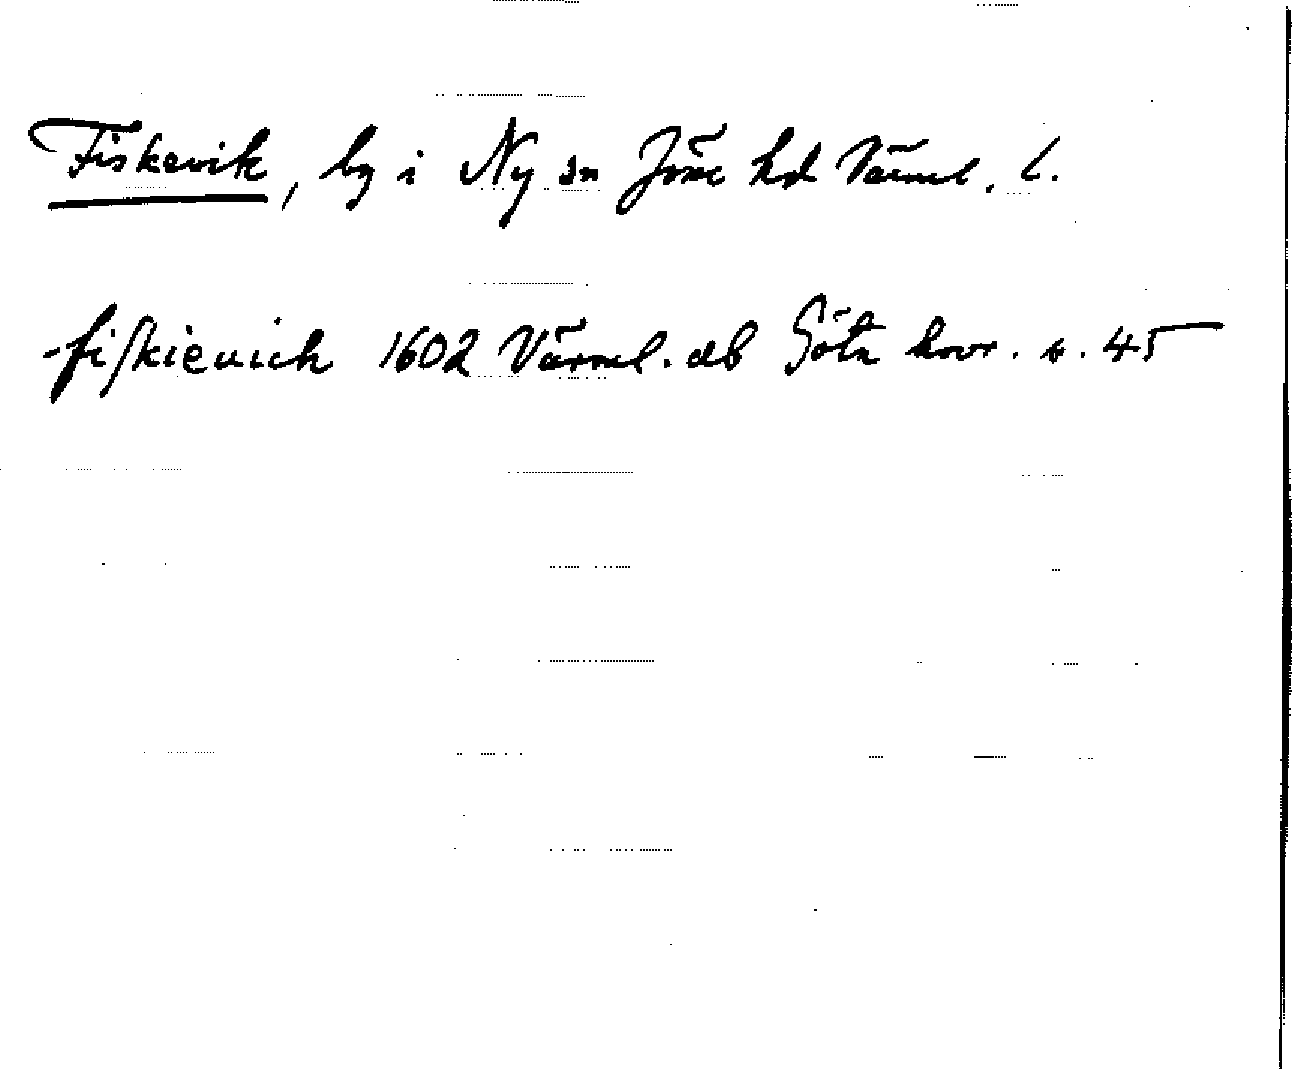 Fiskevik, by i Ny sn Jöss hd Värml. l.
-fiſkieuich 1602 Värml. db Göta hovr. s. 45